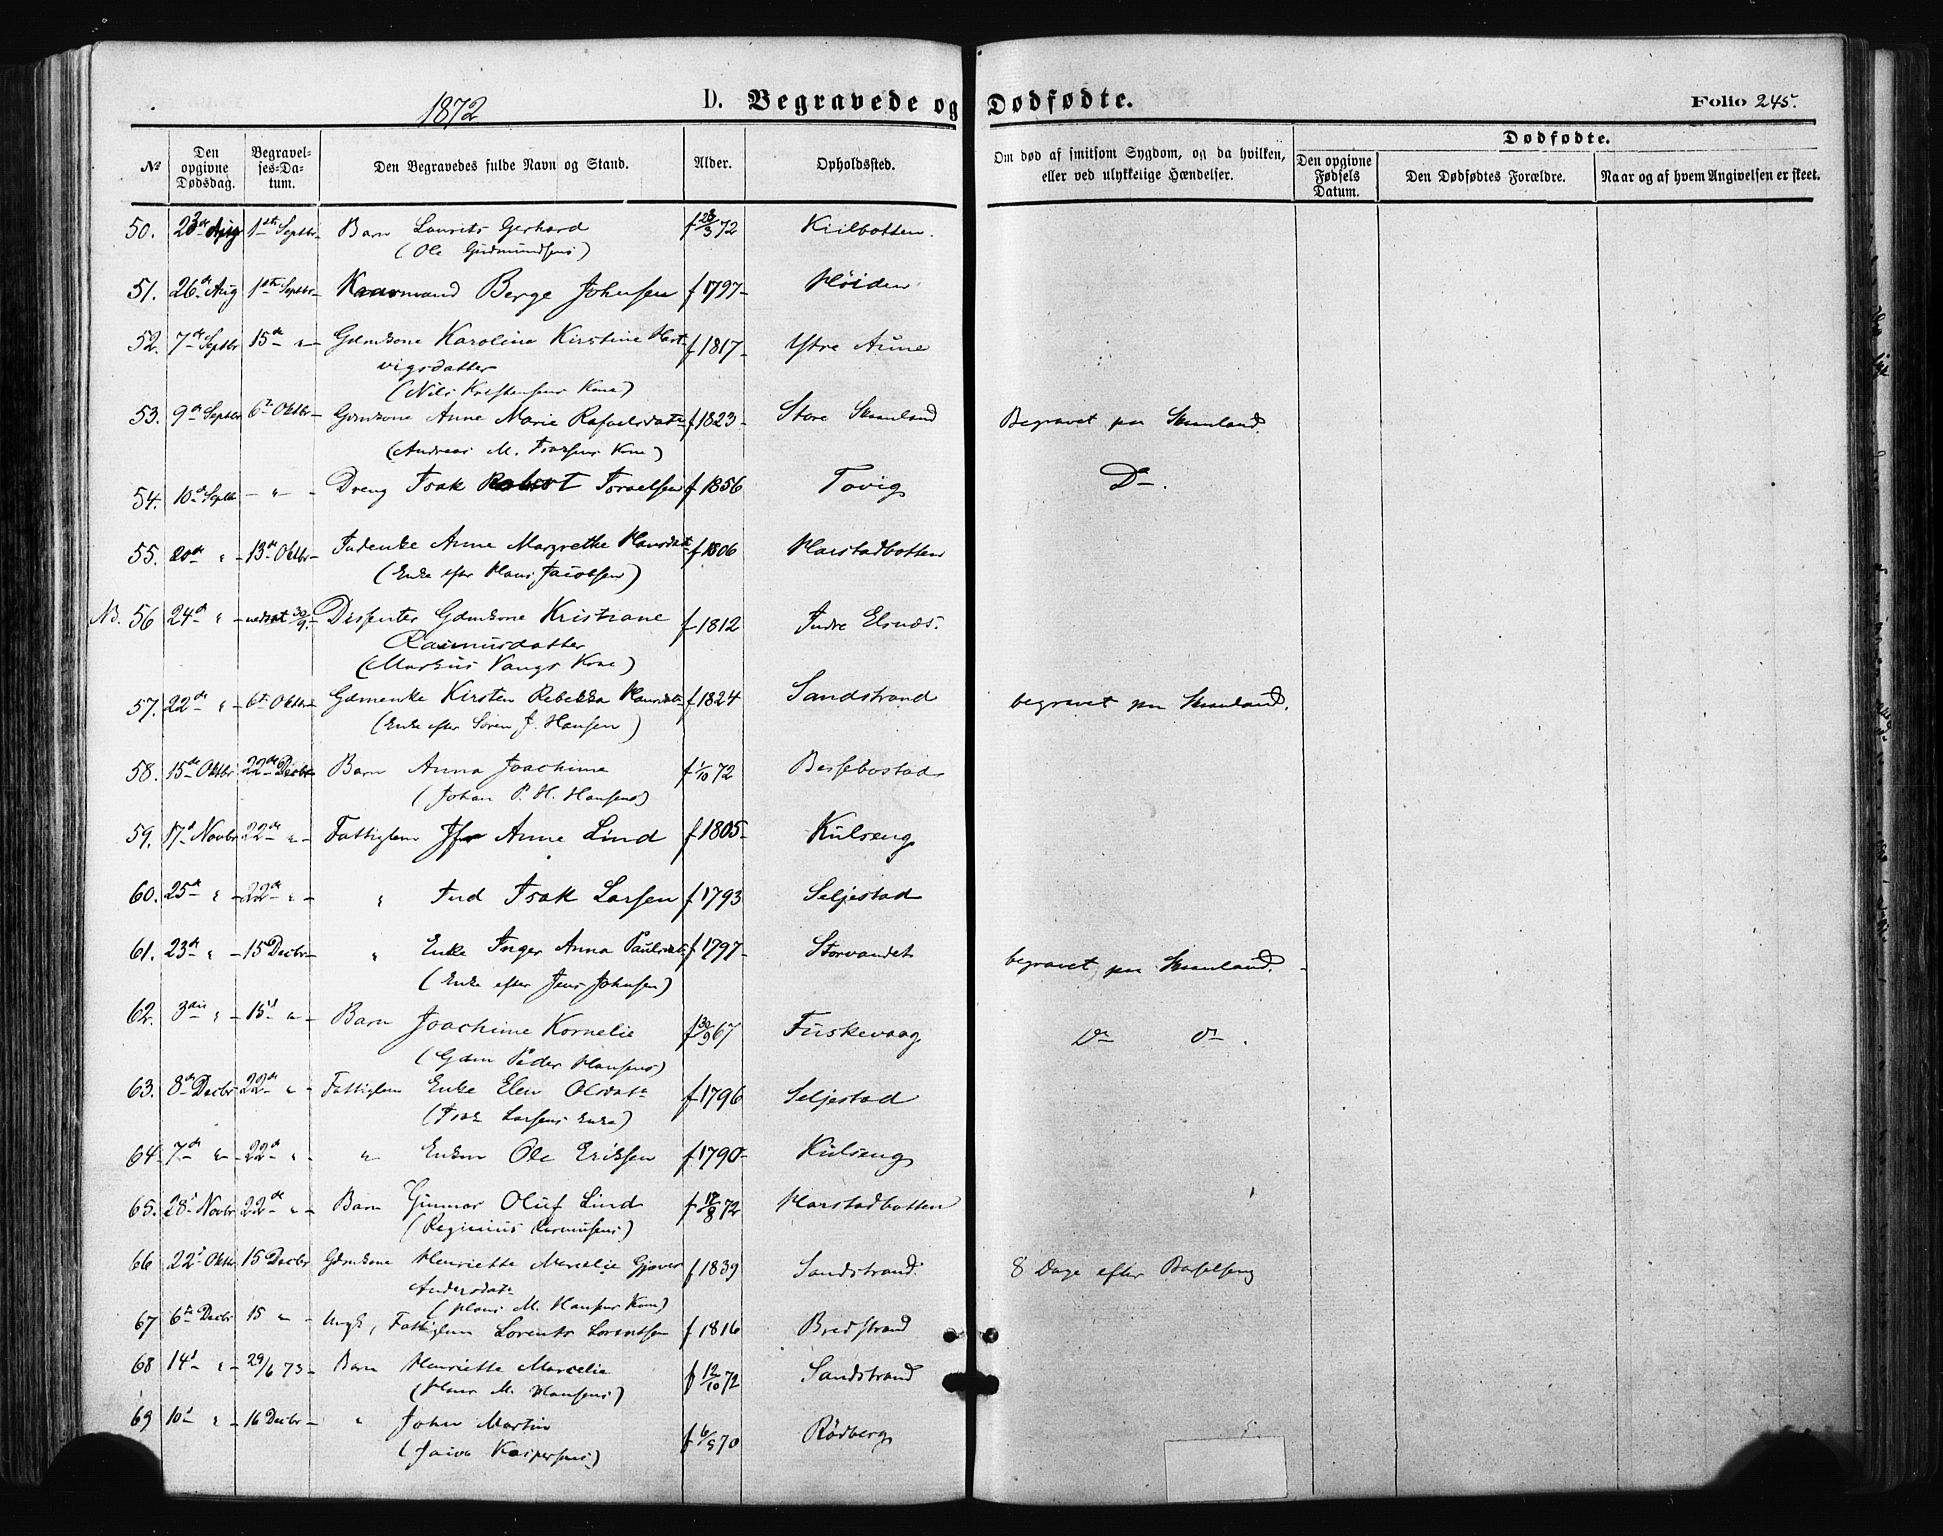 1872
D. Begravede og Dødfødte.
Folio 245.
No
Den opgivne Dødsdag.
Begravelses-Datum.
Den Begravedes fulde Navn og Stand.
Alder.
Opholdssted.
Om død af smitsom Sygdom, og da hvilken, eller ved ulykkelige Hændelser.
Dødfødte.
Den opgivne Fødsels Datum.
Den Dødfødtes Forældre.
Naar og af hvem Angivelsen er skeet.
50. 23de Aug 1ste Septbr Barn Laurits Gerhard f 23/3 72 Kiilbotten.
(Ole Gudmundsens)
51. 26de Aug 1ste Septbr Kaarmand Berge Johnsen f 1797 Høiden
52. 7de Septbr 15de " Gdmkone Karoline Kirstine Hart- f 1817 Ytre Aune
vigsdatter
(Nils Kristensens Kone)
53. 9de Septbr 6te Oktbr Gdmkone Anne Marie Rafaelsdatr f 1823 Store Skaanland Begravet paa Skaanland.
(Andreas M. Kone)
54. 10de Septbr " Dreng Isak Robert Israelsen f 1856 Tovig Do.
55. 20de " 13de Oktbr Inderske Anne Margrethe Hansdatr f 1806 Harstadbotten
(Enke efter Hans Jacobsen)
NB. 56 24de " nedsat 30/9. Dissenter Gdmkone Kristiane f 1812 Indre Elsnæs.
Rasmusdatter
(Markus Vangs Kone)
57. 22de " 6te Oktbr Gdmenke Kirsten Rebekka Hansdatr f 1824 Sandstrand begravet paa Skaanland.
(Enke efter Søren J. Hansen)
58. 15de Oktbr 22de Decbr Barn Anna Joachime f 1/10 72 Bessebostad
(Johan P. H. Hansens)
59. 17de Novbr 22de " Fattiglem Jfr Anne Lind f 1805 Kulseng
60. 25de " 22de " " Ind Isak Larsen f 1793 Seljestad
61. 23de " 15 Decbr " Enke Inger Anna Paulsdatr f 1797 Storvandet begravet paa Skaanland.
(Enke efter Jens Johnsen)
62. 3die " 15de " Barn Joachime Kornelie f 30/9 67 Fuskevaag Do do.
(Gdm Peder Hansens)
63. 8de Decbr 22de " Fattiglem Enke Elen Olsdatr f 1796 Seljestad
(Isak Larsens Enke)
64. 7de " 22de " " Enkm Ole Eriksen f 1790 Kulseng
65. 28de Novbr 22de " Barn Gunnar Oluf Lind f 17/8 72 Harstadbotten
(Reginius Rasmusens)
66 22de Oktbr 15 Decbr Gdmkone Henriette Marcelie Gjæver f 1839 Sandstrand. 8 Dage efter Barselseng
Andersdatr
(Hans M. Hansens Kone)
67 6te Decbr 15 " Ungk, Fattiglem Lorents Lorentsen f 1816 Bredstrand
68 14de " 29/6 73 Barn Henriette Marcelie f 12/10 72 Sandstrand
(Hans M. Hansens)
69 10de " 16 Decbr " John Martin f 6/5 70 Rødberg
(Kaspersens)